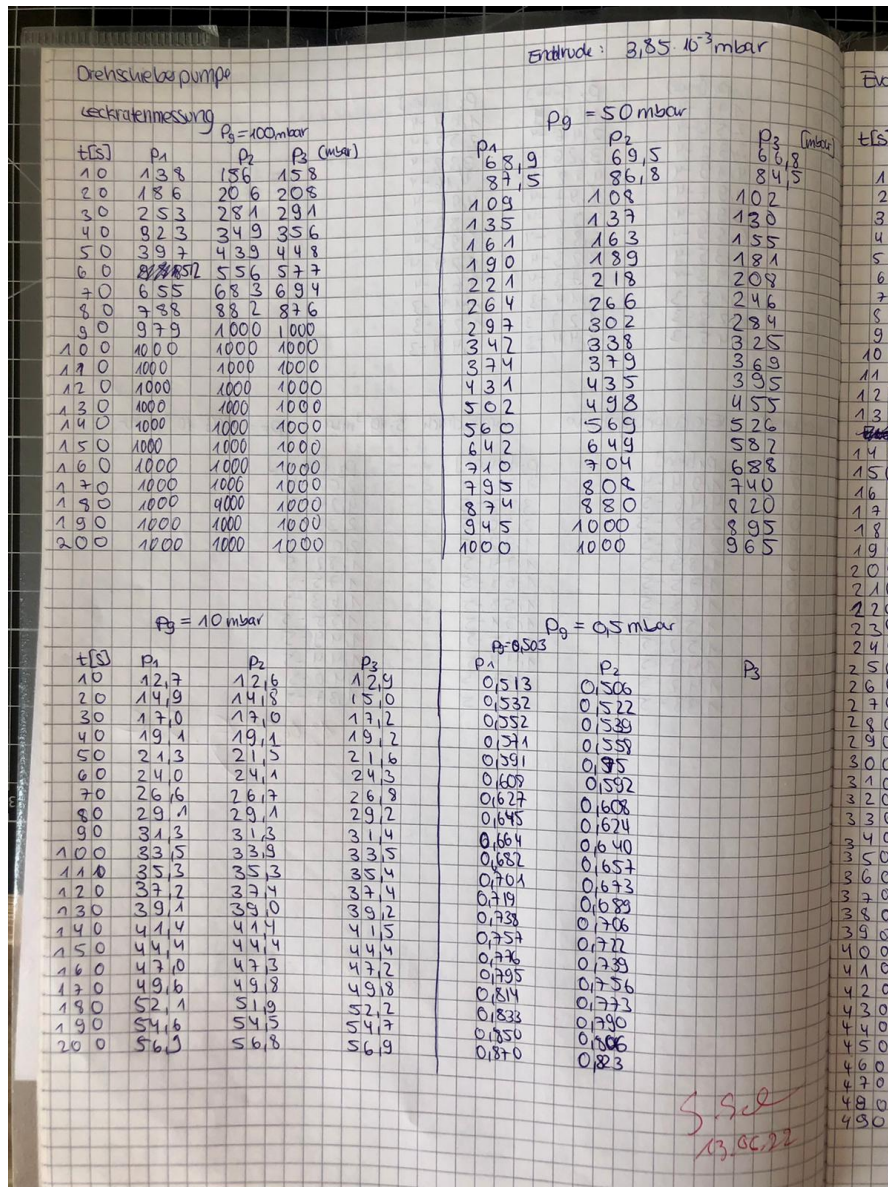 Enddruck: 3,85·10⁻³ mbar
Drehschieberpumpe
Leckratenmessung
Pg = 100 mbar
t[s] P1 P2 P3 (mbar)
10 138 156 158
20 186 206 208
30 253 281 291
40 323 349 356
50 397 439 448
60 512 556 577
70 655 683 694
80 788 882 876
90 979 1000 1000
100 1000 1000 1000
110 1000 1000 1000
120 1000 1000 1000
130 1000 1000 1000
140 1000 1000 1000
150 1000 1000 1000
160 1000 1000 1000
170 1000 1000 1000
180 1000 1000 1000
190 1000 1000 1000
200 1000 1000 1000
Pg = 50 mbar
P1 P2 P3 [mbar]
68,9 69,5 66,8
87,5 86,8 84,5
109 108 102
135 137 130
161 163 155
190 189 181
221 218 208
264 266 246
297 302 284
342 338 325
374 379 369
431 435 395
502 498 455
560 569 526
642 649 582
710 704 688
795 808 740
874 880 820
945 1000 895
1000 1000 965
Pg = 10 mbar
t[s] P1 P2 P3
10 12,7 12,6 12,9
20 14,9 14,8 15,0
30 17,0 17,0 17,2
40 19,1 19,1 19,2
50 21,3 21,5 21,6
60 24,0 24,1 24,3
70 26,6 26,7 26,8
80 29,1 29,1 29,2
90 31,3 31,3 31,4
100 33,5 33,9 33,5
110 35,3 35,3 35,4
120 37,2 37,4 37,4
130 39,1 39,0 39,2
140 41,4 41,4 41,5
150 44,4 44,4 44,4
160 47,0 47,3 47,2
170 49,6 49,8 49,8
180 52,1 51,9 52,2
190 54,6 54,5 54,7
200 56,9 56,8 56,9
Pg = 0,5 mbar
P0=0,503
P1 P2 P3
0,513 0,506
0,532 0,522
0,552 0,539
0,571 0,558
0,591
0,608 0,592
0,627 0,608
0,645 0,624
0,664 0,640
0,682 0,657
0,701 0,673
0,719 0,689
0,738 0,706
0,757 0,722
0,776 0,739
0,795 0,756
0,814 0,773
0,833 0,790
0,850 0,806
0,870 0,823
13.06.22
t[s]
1
2
3
4
5
6
7
8
9
10
11
12
13
14
150
16
17
18
19
20
210
220
23
24
250
260
270
280
290
300
310
320
330
340
350
360
370
380
390
400
410
420
430
440
450
460
470
480
490